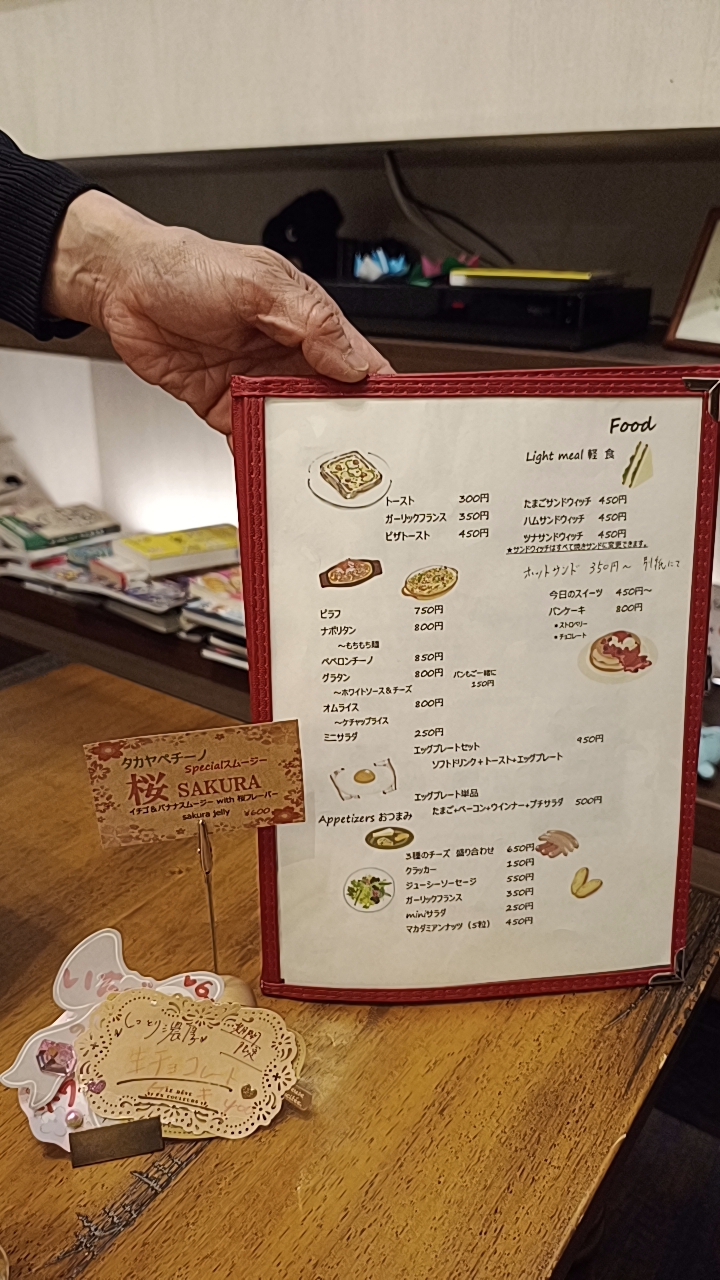 Food
Light meal 軽 食
トースト 300円
ガーリックフランス 350円
ピザトースト 450円
たまごサンドウィッチ 450円
ハムサンドウィッチ 450円
ツナサンドウィッチ 450円
★サンドウィッチはすべて焼きサンドに変更できます。
ホットサンド 350円～
今日のスイーツ 450円～
パンケーキ 800円
•ストロベリー
•チョコレート
ピラフ 750円
ナポリタン 800円
～もちもち麺
ペペロンチーノ 850円
グラタン 800円 パンもご一緒に
150円
～ホワイトソース＆チーズ
オムライス 800円
～ケチャップライス
ミニサラダ 250円
エッグプレートセット 950円
ソフトドリンク+トースト+エッグプレート
エッグプレート単品
たまご+ベーコン+ウインナー+プチサラダ 500円
Appetizers おつまみ
3種のチーズ 盛り合わせ 650円
クラッカー 150円
ジューシーソーセージ 550円
ガーリックフランス 350円
miniサラダ 250円
マカダミアンナッツ（5粒） 450円
タカヤペチーノ
Specialスムージー
桜 SAKURA
イチゴ＆バナナスムージー with 桜フレーバー
sakura jelly ¥600
しっとり濃厚 期間
限定
生チョコレート